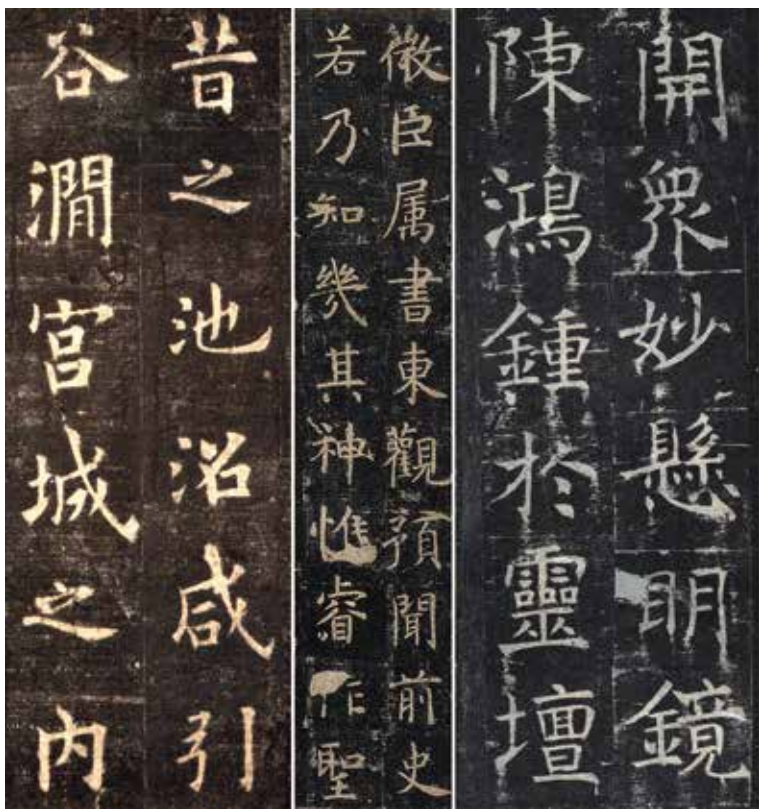 開衆妙懸明鏡
陳鴻鍾於靈壇
微臣属書東觀預聞前史
若乃知幾其神惟睿作聖
昔之池沼咸引
谷澗宫城之内